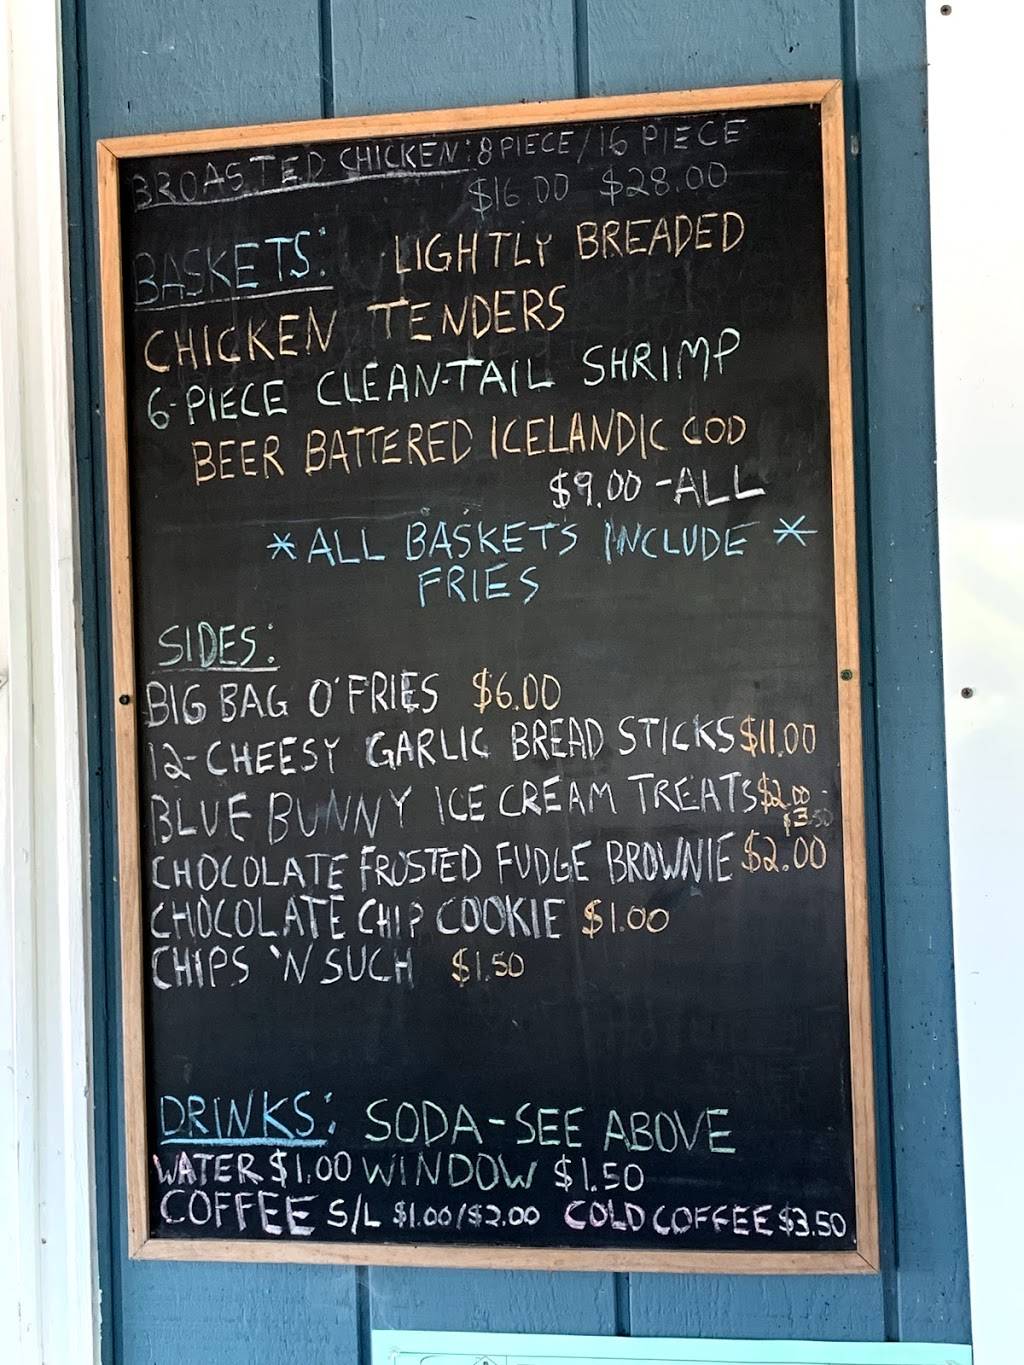 BROASTED CHICKEN: 8 PIECE/16 PIECE
$16.00 $28.00
BASKETS: LIGHTLY BREADED
CHICKEN TENDERS
6-PIECE CLEAN-TAIL SHRIMP
BEER BATTERED ICELANDIC COD
$9.00-ALL
*ALL BASKETS INCLUDE*
FRIES
SIDES:
BIG BAG O'FRIES $6.00
12-CHEESY GARLIC BREAD STICKS $11.00
BLUE BUNNY ICE CREAM TREATS $2.00-
$3.50
CHOCOLATE FROSTED FUDGE BROWNIE $2.00
CHOCOLATE CHIP COOKIE $1.00
CHIPS 'N SUCH $1.50
DRINKS: SODA-SEE ABOVE
WATER $1.00 WINDOW $1.50
COFFEE S/L $1.00/$2.00 COLD COFFEE $3.50